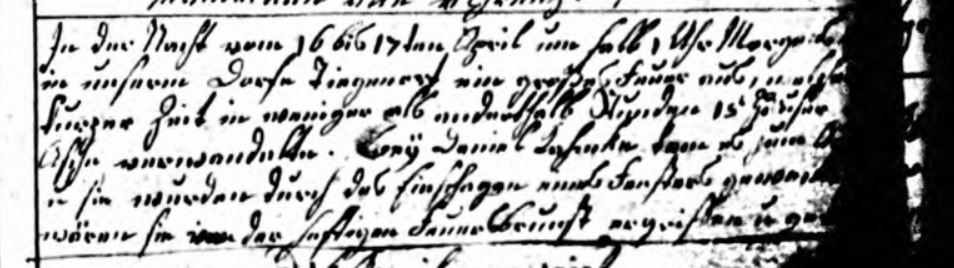 In der Nacht vom 16 bis 17ten April um halb 1 Uhr Morgens
in unserem Dorfe Tiegenort ein großes Feuer aus, welche
kurzer Zeit in weniger als anderthalb Stunden 15 Häuser
Asche verwandelte. Bey Daniel kam es zum
u sie wurden durch das Einschlagen eines Fensters geweckt
wären sie von der heftigen Feuersbrunst ergriffen u